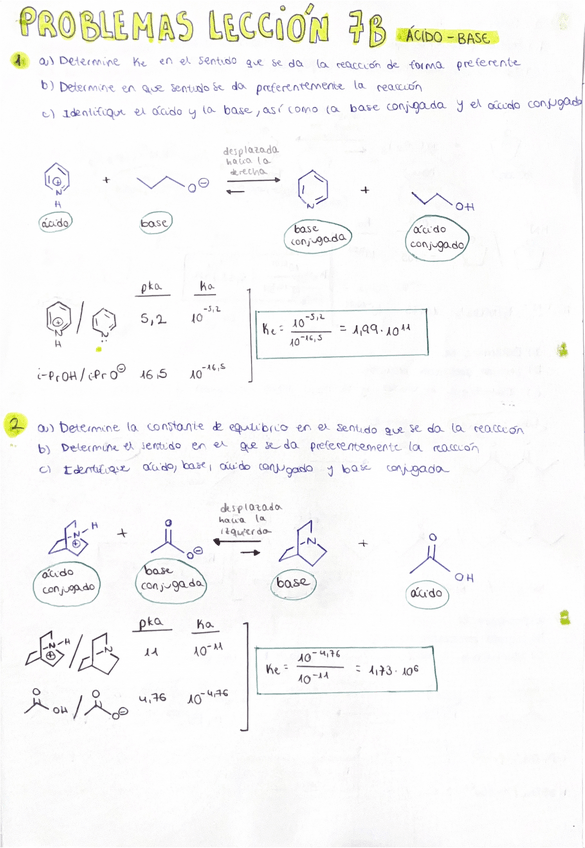 PROBLEMAS LECCIÓN 7B ÁCIDO-BASE
1 a) Determine Ke en el sentido que se da la reacción de forma preferente
b) Determine en que sentido se da preferentemente la reacción
c) Identifique el ácido y la base, así como la base conjugada y el ácido conjugado
desplazada
hacia la
derecha
N H + O⊖ N + OH
ácido base base conjugada ácido conjugado
pka Ka
N H / N 5,2 10^-5,2
i-PrOH/iPrO⊖ 16,5 10^-16,5
Kc = 10^-5,2 / 10^-16,5 = 1,99·10^11
2 a) Determine la constante de equilibrio en el sentido que se da la reacción
b) Determine el sentido en el que se da preferentemente la reacción
c) Identifique ácido, base, ácido conjugado y base conjugada
desplazada
hacia la
izquierda
N-H ⊕ + O O⊖ N + O OH
ácido conjugado base conjugada base ácido
pka Ka
N-H ⊕ / N 11 10^-11
O OH / O O⊖ 4,76 10^-4,76
Ke = 10^-4,76 / 10^-11 = 1,73·10^6